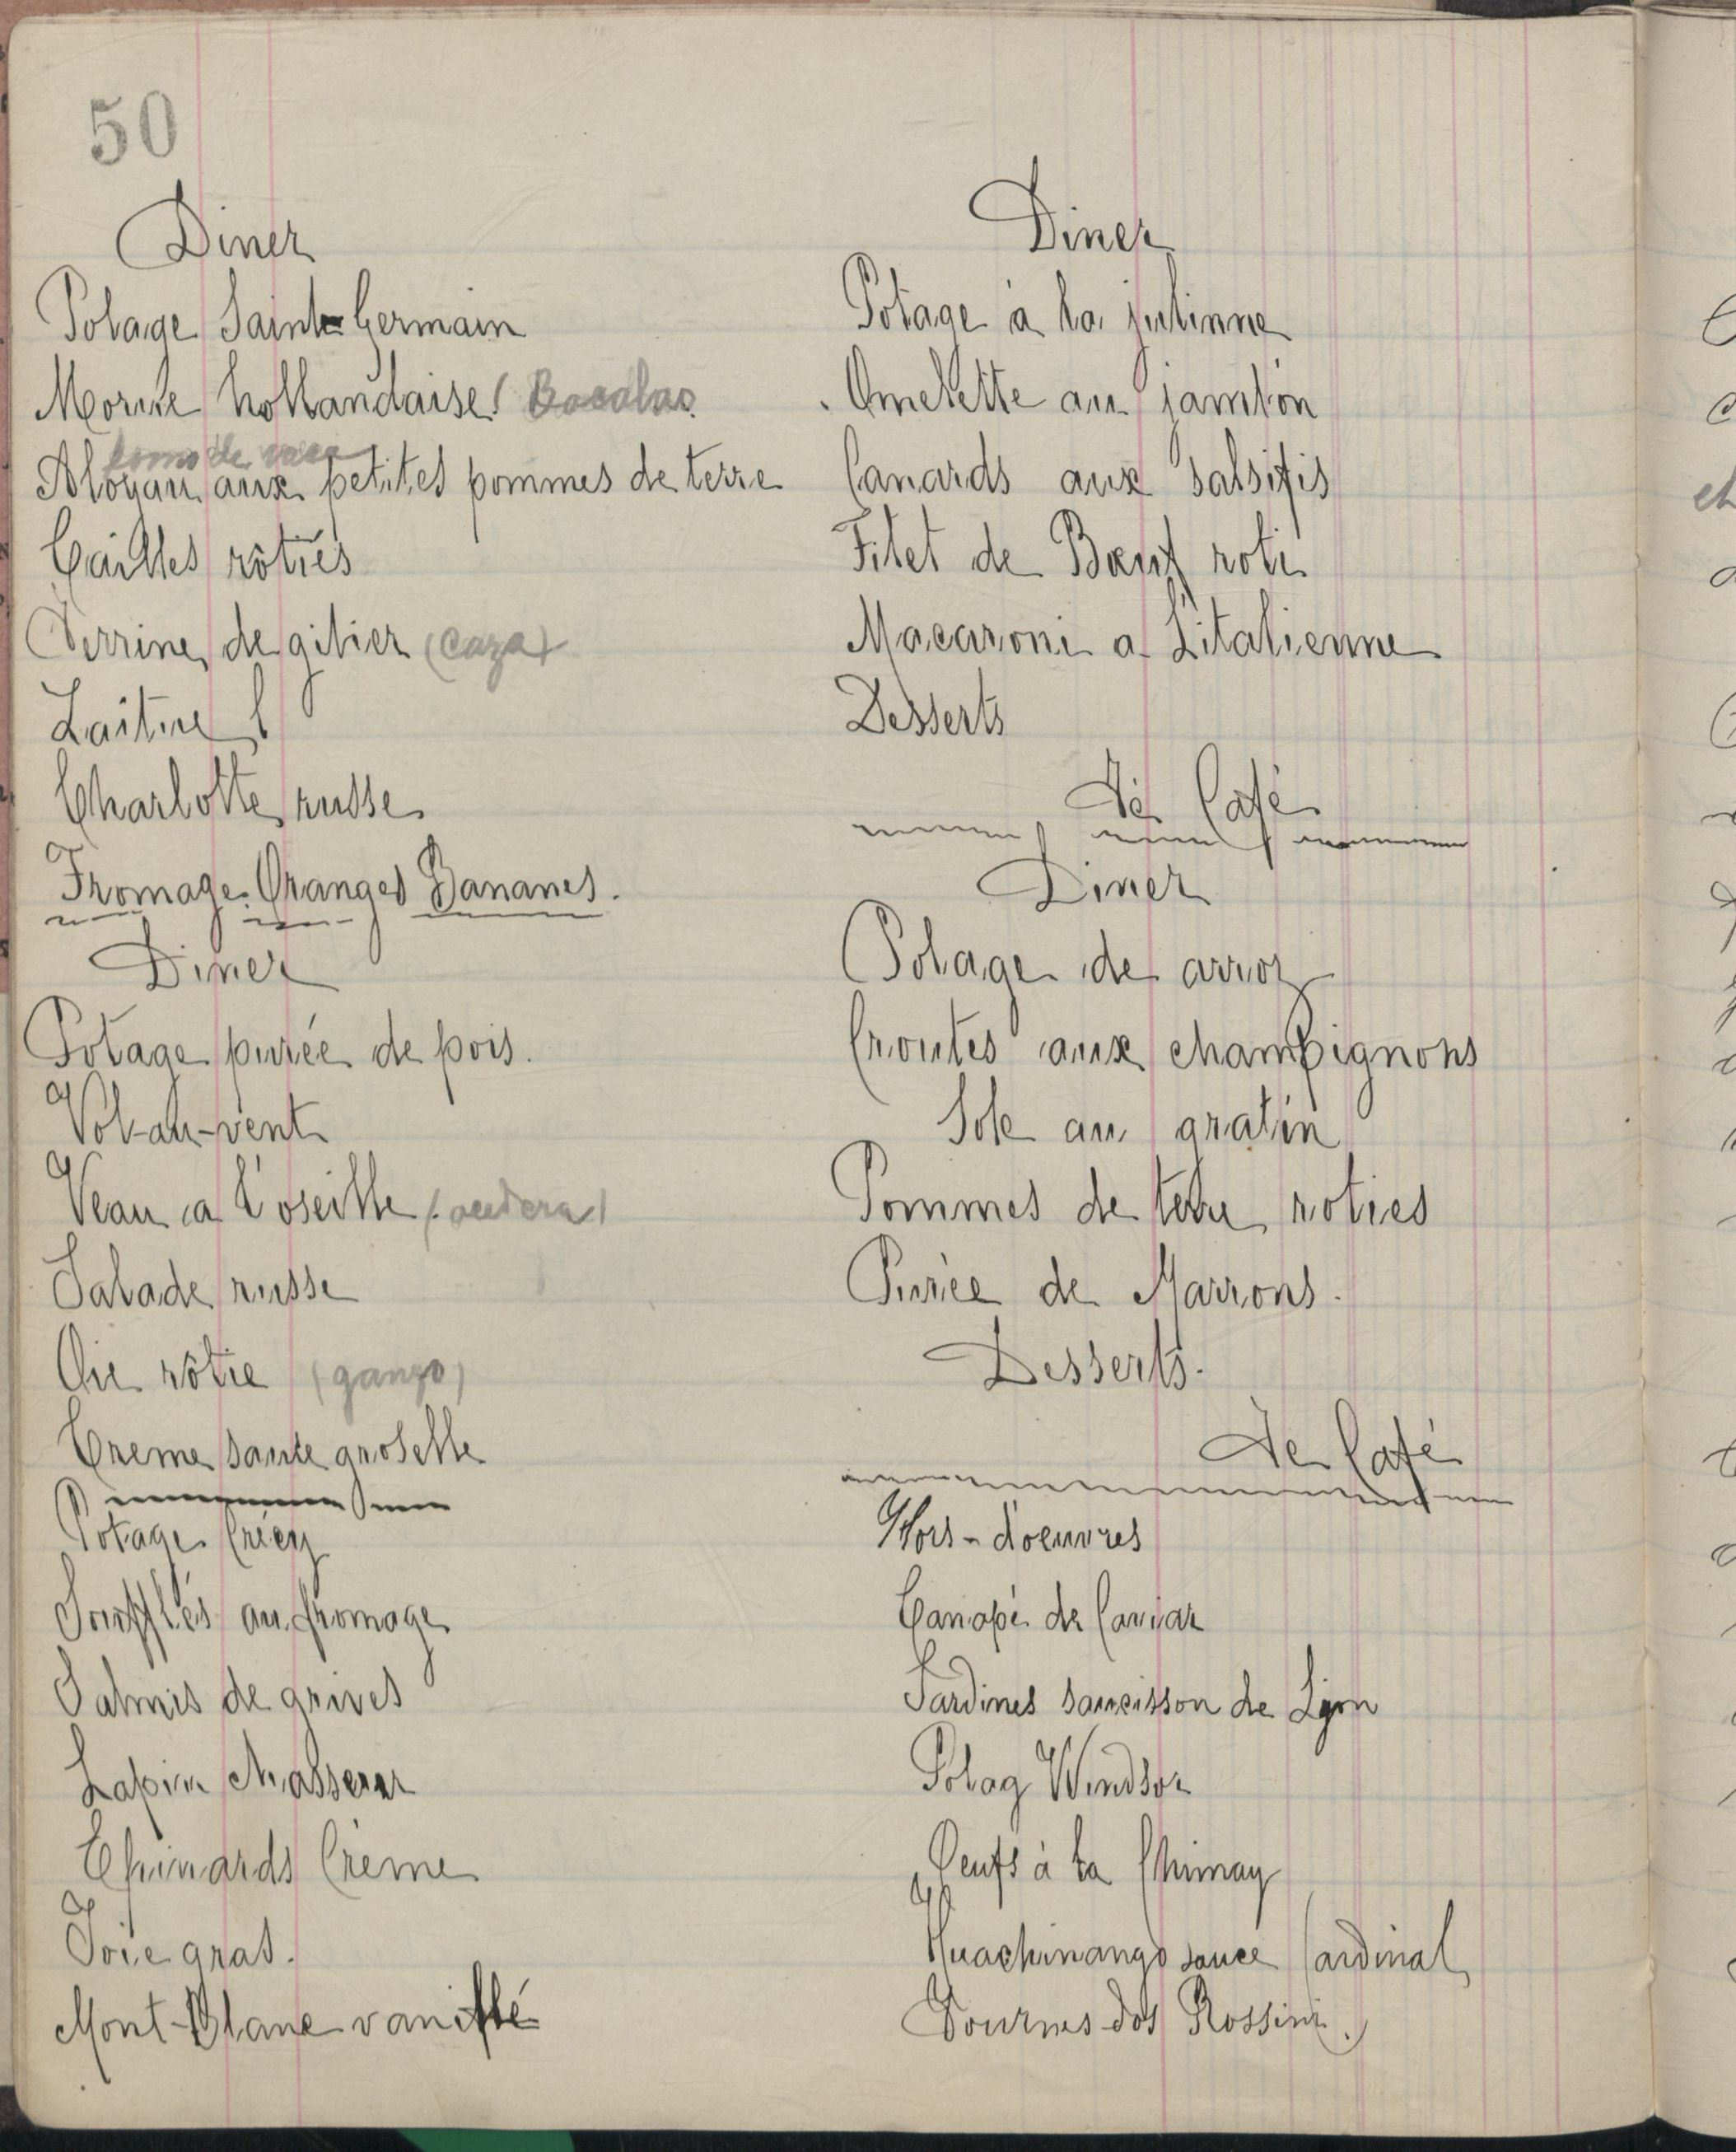 50
Diner
Potage Saint-Germain
Morue hollandaise (Bacalao)
lomo de vaca
Aloyau aux petites pommes de terre
Cailles rôties
Terrine de gibier (caza)
Laitue
Charlotte russe
Fromage. Oranges Bananes.
Diner
Potage purée de pois.
Vol-au-vent
Veau a l'oseille
Salade russe
Oie rôtie (ganzo)
Creme sauce groselle
Potage Crécy
Soufflés au fromage
Salmis de grives
Lapin chasseur
Epinards Crème
Foie gras.
Mont-Blanc vanillé
Diner
Potage à la julinne
Omelette au jambon
Canards aux salsifis
Filet de Bœuf roti
Macaroni a L'italienne
Desserts
Té Café
Diner
Potage de arroz
Croutes aux champignons
Sole au gratin
Pommes de terre roties
Purée de Marrons.
Desserts.
Te Café
Hors-d'oeuvres
Canapé de Caviar
Sardines saucisson de Lyon
Potag Windsor
Oeufs à la Chimay
Huachinango sauce Cardinal
Tournes-dos Rossini.